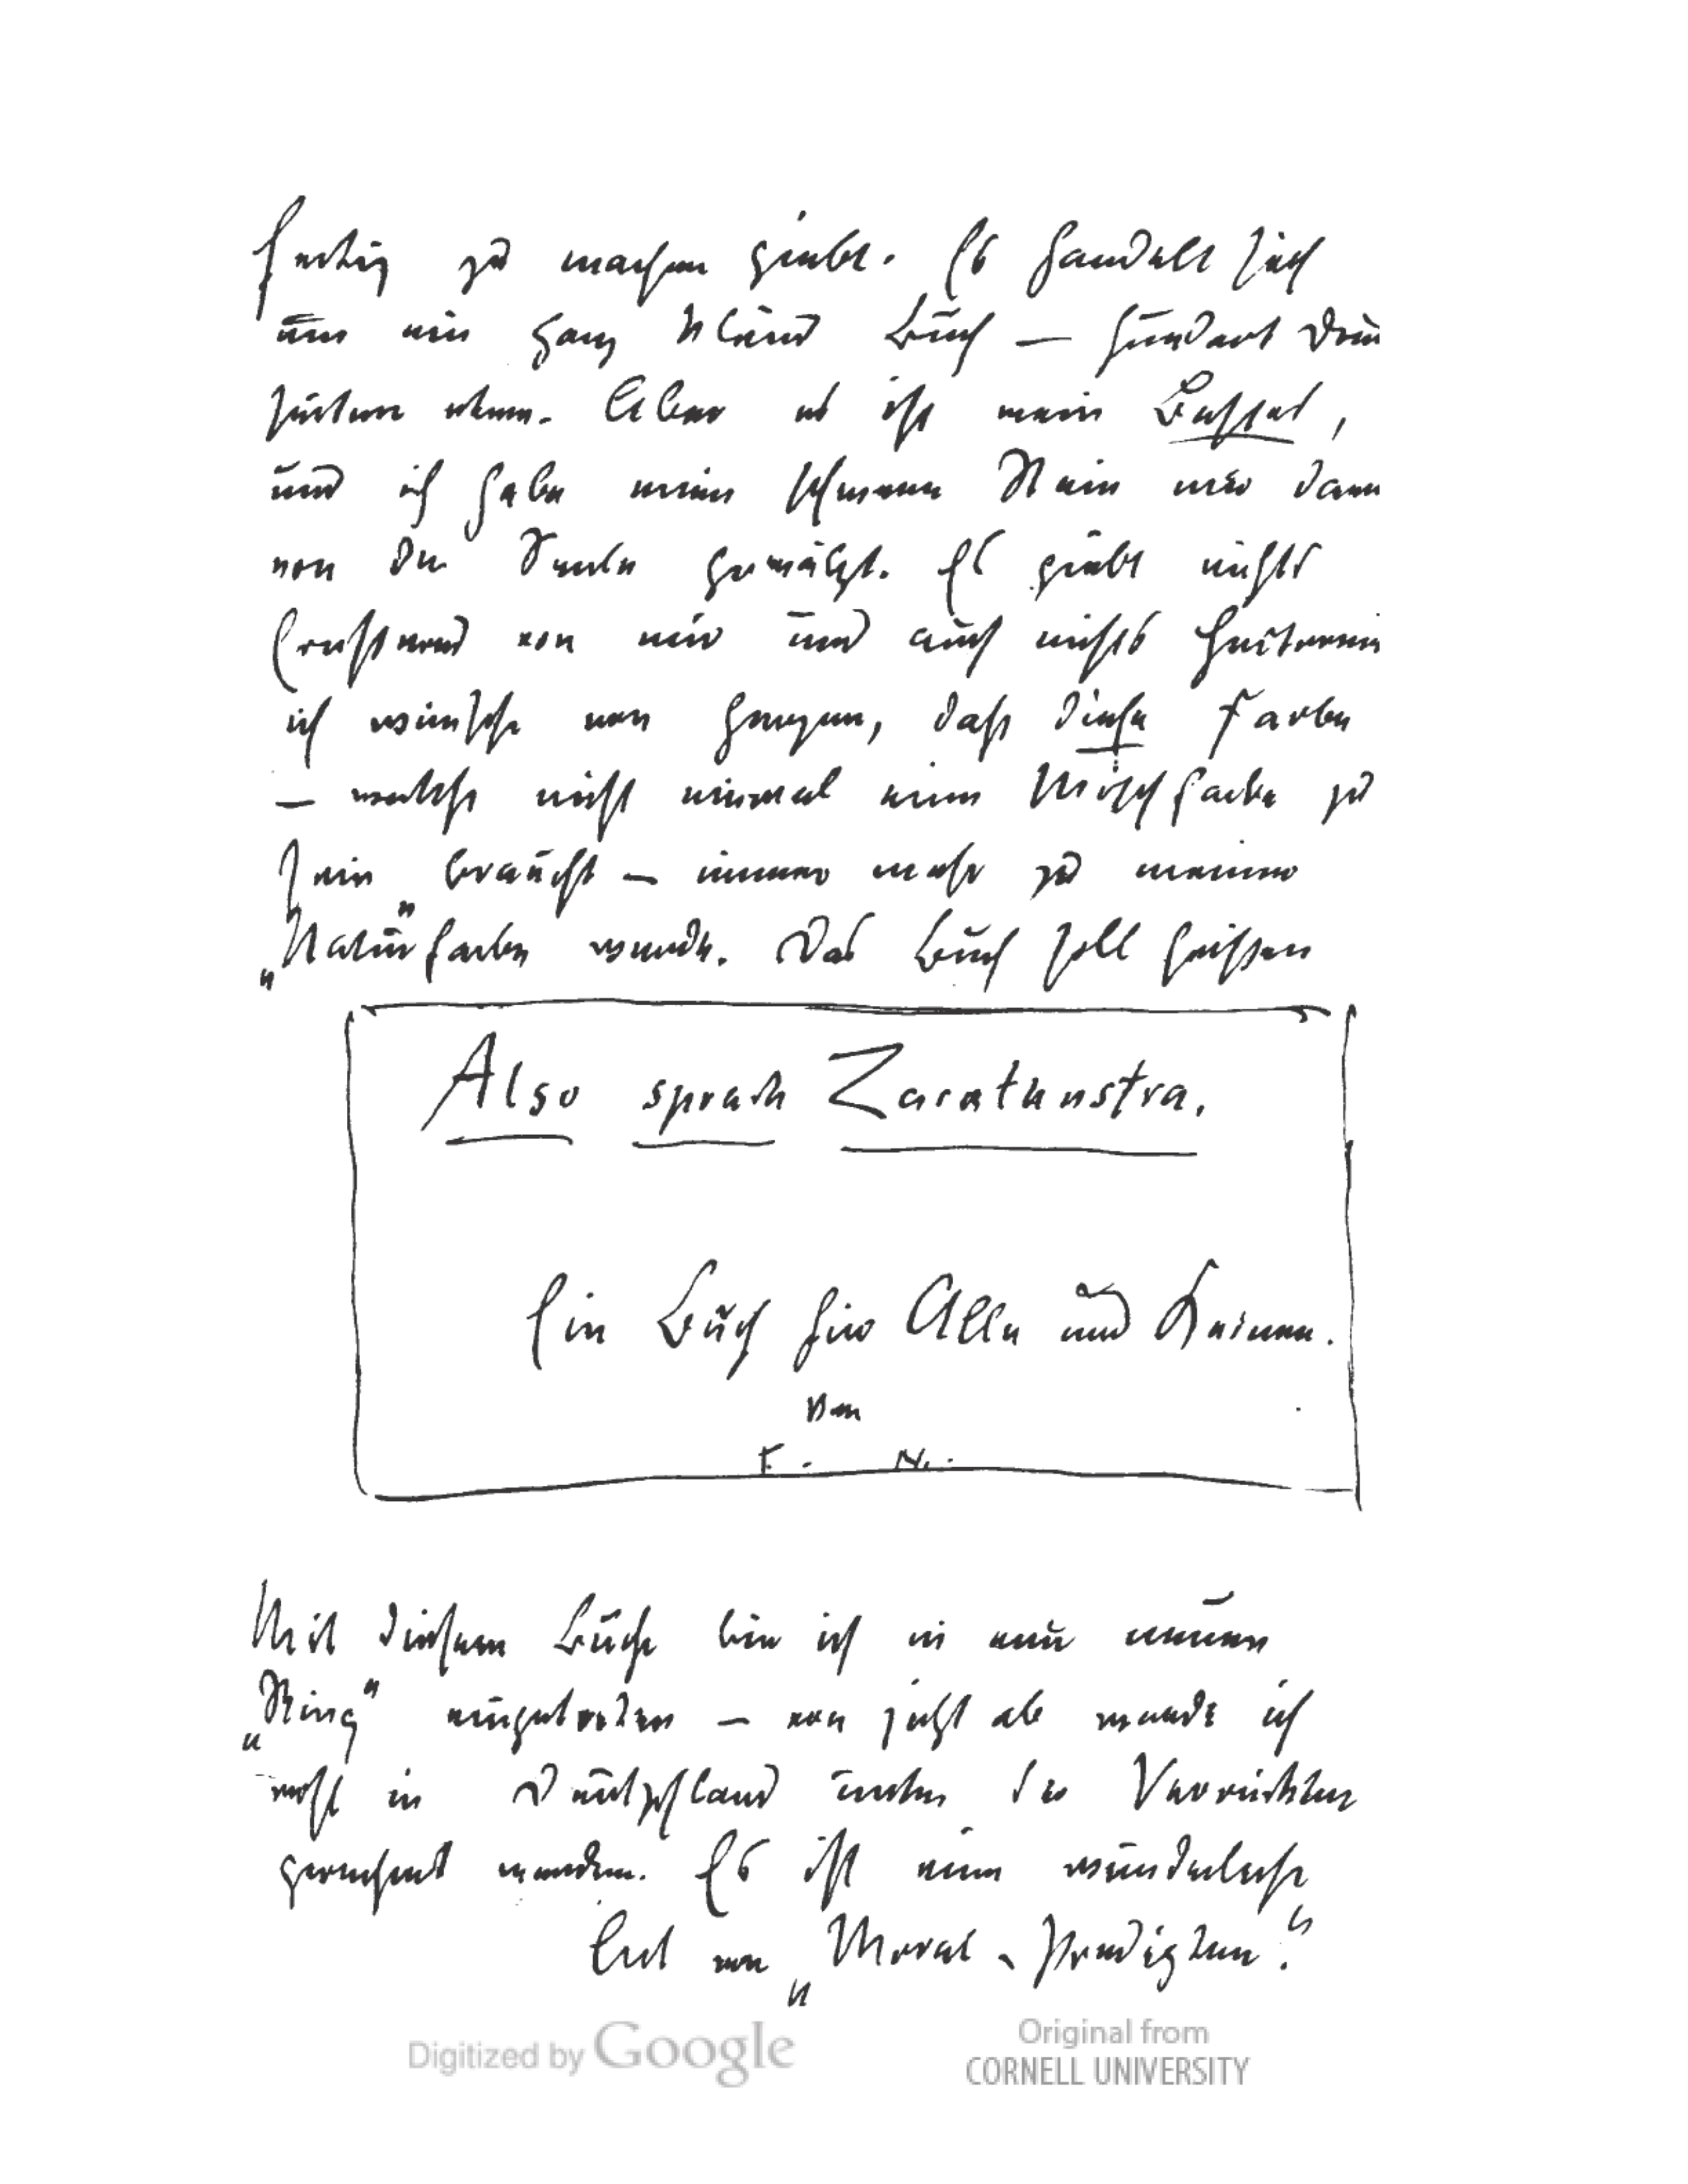 fertig zu machen giebt. Es handelt sich
um ein ganz kleines Buch — hundert Druck
seiten etwa. Aber es ist mein Bestes,
und ich habe einen schweren Stein mir damit
von der Seele gewälzt. Es giebt nichts
Ernsteres von mir und auch nichts Heitereres
ich wünsche von Herzen, daß diese Farbe
— welche nicht einmal eine Mischfarbe zu
sein braucht — immer mehr zu meiner
„Natur"farbe werde. Das Buch soll heißen
Also sprach Zarathustra.
Ein Buch für Alle und Keinen.
Von
F. N.
Mit diesem Buche bin ich in einen neuen
„Ring" eingetreten — von jetzt ab werde ich
wohl in Deutschland unter die Verrückten
gerechnet werden. Es ist eine wunderliche
Art von „Moral-Predigten."
Digitized by Google
Original from
CORNELL UNIVERSITY